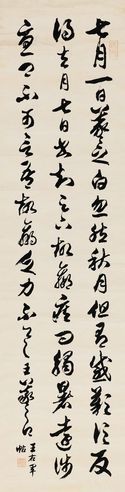 七月一日羲之白忽然秋月但有感歎信反
得去月七日書知足下故羸疾問觸暑遠涉
憂卿不可言吾故羸乏力不具王羲之白
王右軍
帖